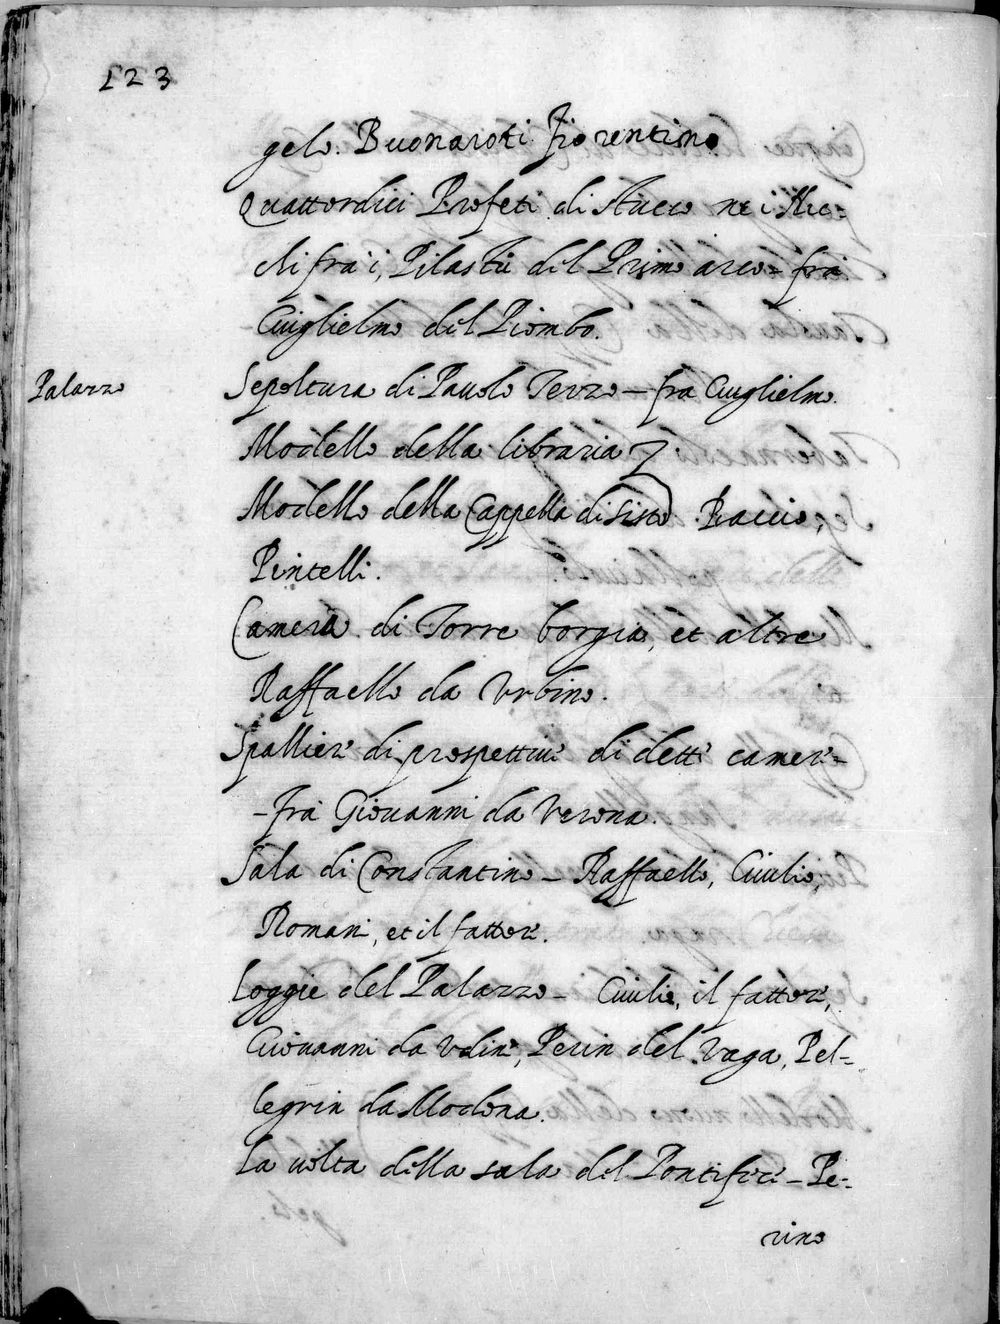 123
gelo. Buonaroti fiorentino
Quattordici Profeti di Stucco ne i Nic=
chi frà i Pilastri del Primo arco - frà
Guiglielmo del Piombo.
Palazzo
Sepoltura di Pauolo Terzo - fra Guiglielmo.
Modello della libraria
Modello della Cappella di Sisto Baccio,
Pintelli.
Camera di Torre borgia, et altre
Raffaello da Urbino.
Spallier di prospettiue di dette camere-
-fra Giouanni da Verona.
Sala di Constantino - Raffaello, Giulio,
Romani, et il fattore.
Loggie del Palazzo - Giulio, il fattore,
Giouanni da Udine, Perin del Vaga, Pel-
legrin da Modona.
La uolta della sala del Pontefici - Pe-
rino